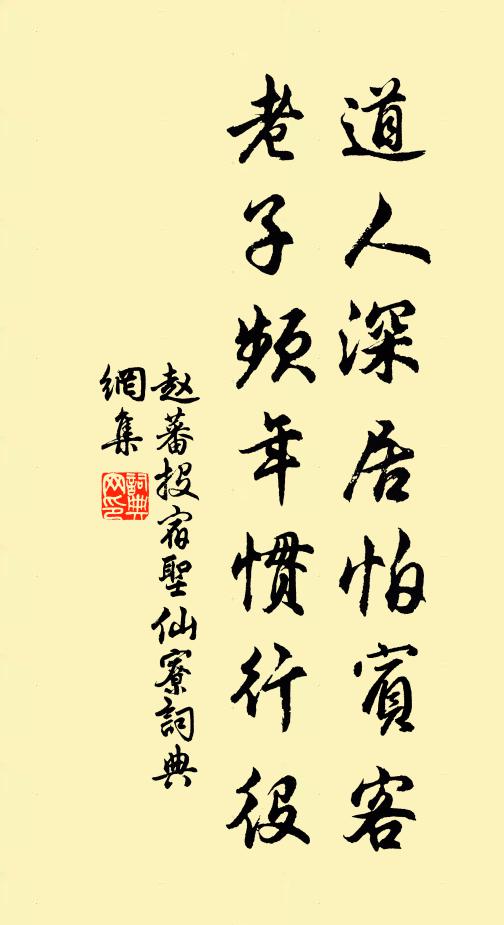 道人深居怕賓客
老子頻年慣行役
赵蕃投宿聖仙寮詞典
網集
詞典
网印